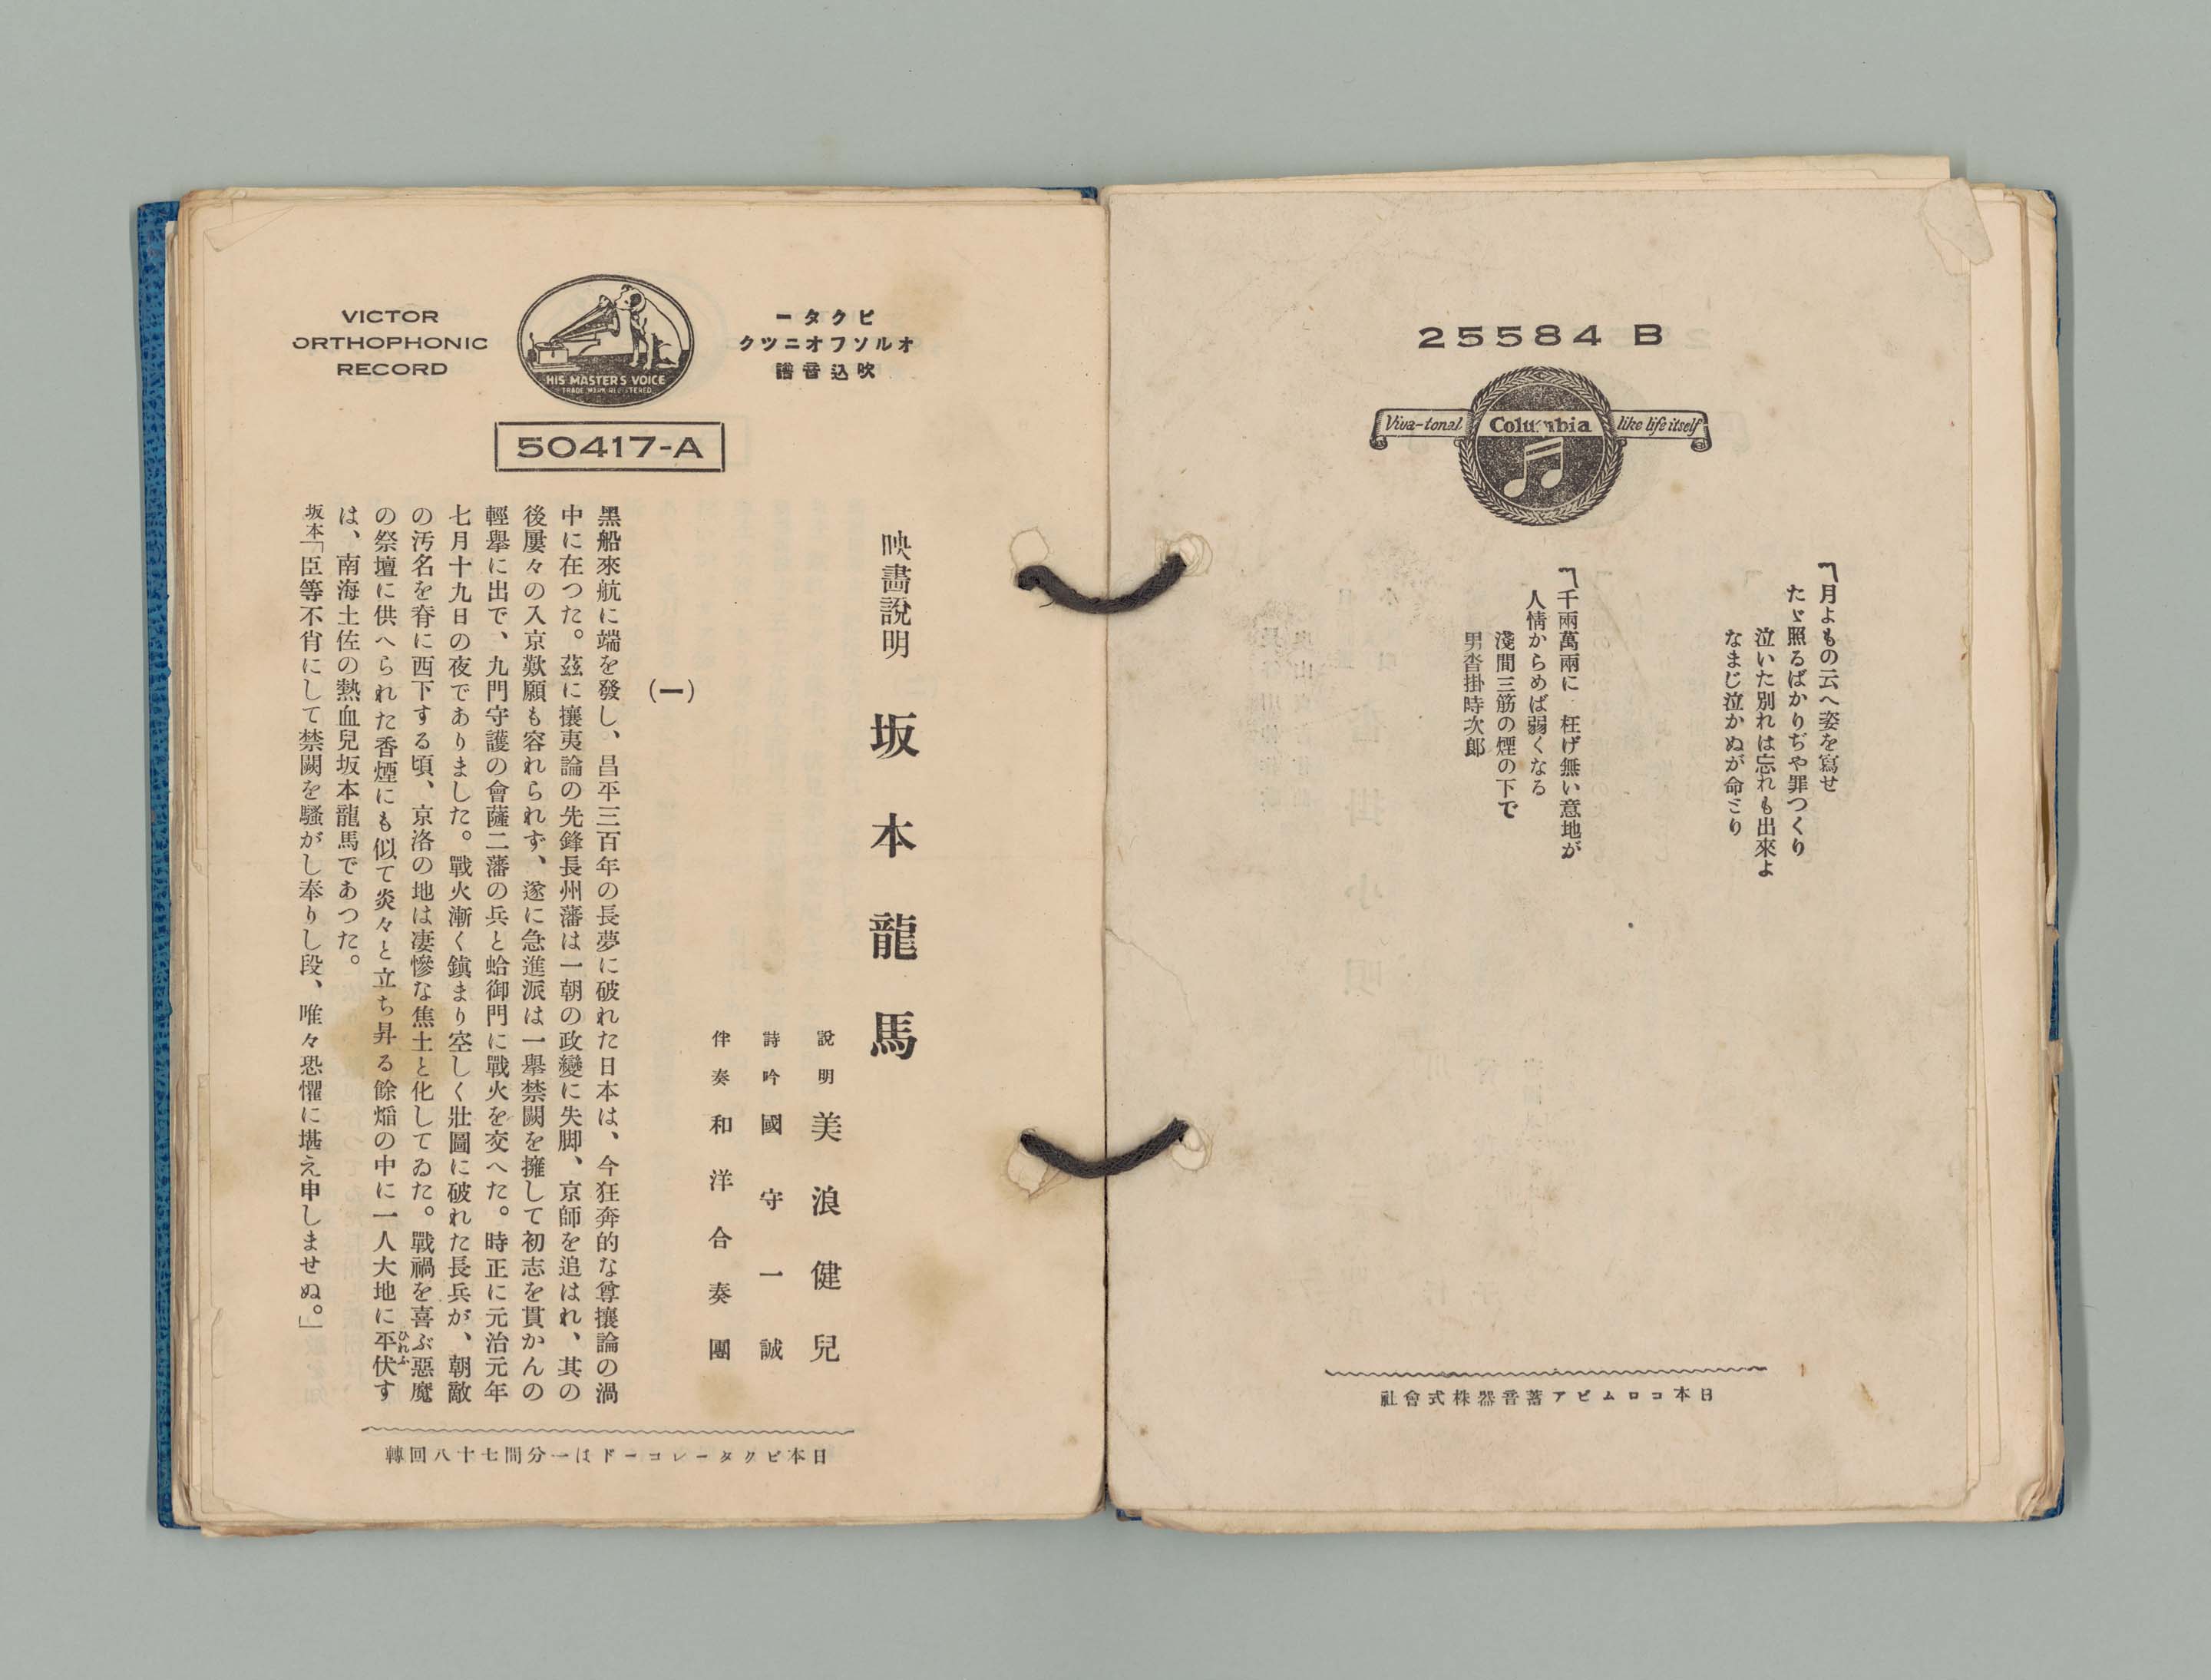 25584 B
Viva-tonal Columbia like life itself
﹁月よもの云へ姿を寫せ
たゞ照るばかりぢや罪つくり
泣いた別れは忘れも出來よ
なまじ泣かぬが命とり
﹁千兩萬兩に 枉げ無い意地が
人情からめば弱くなる
淺間三筋の煙の下で
男沓掛時次郎
日本コロムビア蓄音器株式會社
VICTOR
ORTHOPHONIC
RECORD
HIS MASTER'S VOICE
TRADE MARK REGISTERED
ビクター
オルソフオニツク
吹込音譜
50417-A
映畵說明 坂本龍馬
說明 美浪健兒
詩吟 國守一誠
伴奏 和洋合奏團
(一)
黑船來航に端を發し、昌平三百年の長夢に破れた日本は、今狂奔的な尊攘論の渦
中に在つた。茲に攘夷論の先鋒長州藩は一朝の政變に失脚、京師を追はれ、其の
後屢々の入京歎願も容れられず、遂に急進派は一擧禁闕を擁して初志を貫かんの
輕擧に出で、九門守護の會薩二藩の兵と蛤御門に戰火を交へた。時正に元治元年
七月十九日の夜でありました。戰火漸く鎭まり空しく壯圖に破れた長兵が、朝敵
の汚名を脊に西下する頃、京洛の地は凄慘な焦土と化してゐた。戰禍を喜ぶ惡魔
の祭壇に供へられた香煙にも似て炎々と立ち昇る餘燼の中に一人大地に平伏す
ひれふ
は、南海土佐の熱血兒坂本龍馬であつた。
坂本「臣等不肖にして禁闕を騷がし奉りし段、唯々恐懼に堪え申しませぬ。」
日本ビクターレコードは一分間七十八回轉